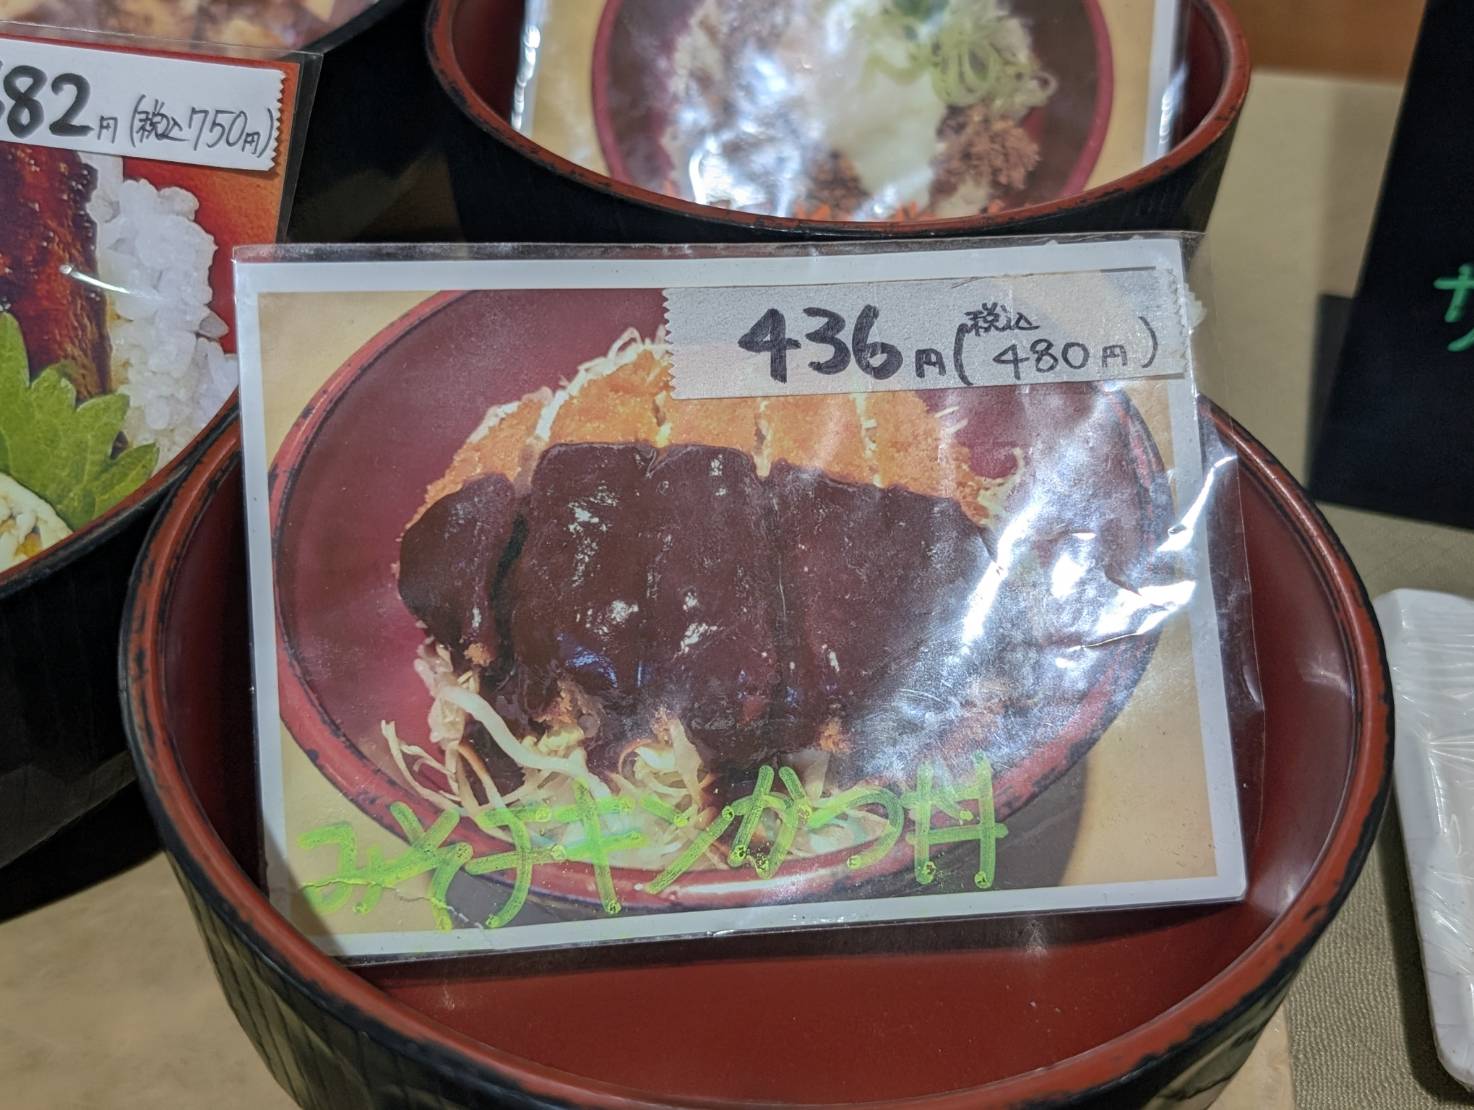 82円(税込750円)
436円(税込480円)
みそチキンかつ丼